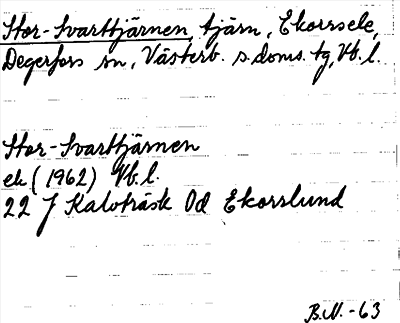 Stor-Svarttjärnen, tjärn, Ekorrsele,
Degerfors sn, Västerb. s. doms. tg, Vb. l.
Stor-Svarttjärnen
ek (1962) Vb. l.
22 J Kalvträsk Od Ekorslund
B.N. -63